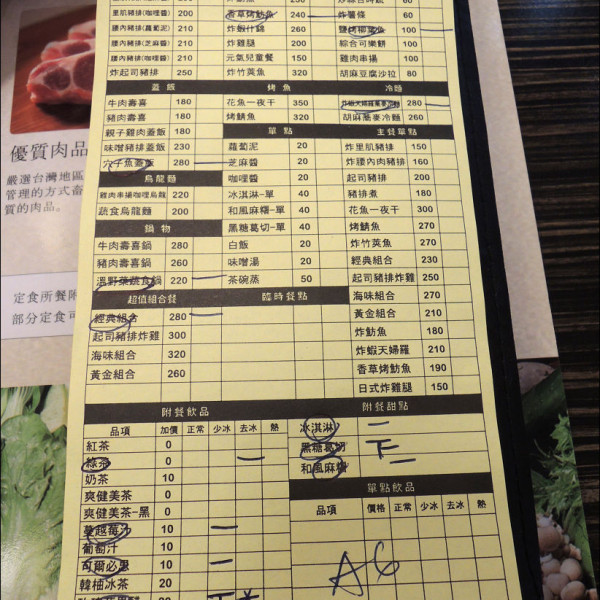 里肌豬排(咖哩醬) 200 香草烤魴魚 240 炸薯條 60
腰內豬排(蘿蔔泥) 210 炸蝦什錦 260 鹽烤柳葉魚 100
腰內豬排(芝麻醬) 210 炸雞腿 200 綜合可樂餅 100
腰內豬排(咖哩醬) 210 元氣兒童餐 150 雞肉串揚 100
炸起司豬排 250 炸竹莢魚 320 胡麻豆腐沙拉 80
蓋飯 烤魚 冷麵
牛肉壽喜 180 花魚一夜干 350 炸蝦天婦羅蕎麥冷麵 280
豬肉壽喜 180 烤鯖魚 320 胡麻蕎麥冷麵 260
親子雞肉蓋飯 180 單點 主餐單點
味噌豬排蓋飯 230 蘿蔔泥 20 炸里肌豬排 150
穴子魚蓋飯 280 芝麻醬 20 炸腰內肉豬排 160
烏龍麵 咖哩醬 20 起司豬排 200
雞肉串揚咖哩烏龍 220 冰淇淋-單 40 豬排煮 180
蔬食烏龍麵 200 和風麻糬-單 40 花魚一夜干 300
鍋物 黑糖葛切-單 40 烤鯖魚 270
牛肉壽喜鍋 280 白飯 20 炸竹莢魚 270
豬肉壽喜鍋 260 味噌湯 20 經典組合 230
溫野菜蔬食鍋 220 茶碗蒸 50 起司豬排炸雞 250
超值組合餐 臨時餐點 海味組合 270
經典組合 280 黃金組合 210
起司豬排炸雞 300 炸魴魚 180
海味組合 320 炸蝦天婦羅 210
黃金組合 260 香草烤魴魚 190
日式炸雞腿 150
附餐飲品 附餐甜點
品項 加價 正常 少冰 去冰 熱 冰淇淋
紅茶 0 黑糖葛切
綠茶 0 和風麻糬
奶茶 10 單點飲品
爽健美茶 0 品項 價格 正常 少冰 去冰 熱
爽健美茶-黑 0
蔓越莓汁 10
葡萄汁 10
可爾必思 10 A6
韓柚冰茶 20
優質肉品
嚴選台灣地區
管理的方式畜
質的肉品。
定食所餐附
部分定食可